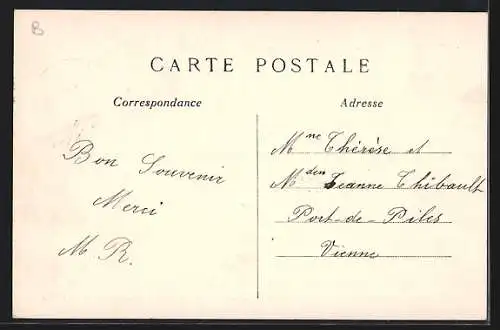 B
CARTE POSTALE
Correspondance
Bon Souvenir
Merci
M. R.
Adresse
Mme Thérèse et
Mden Jeanne Thibault
Port-de-Piles
Vienne